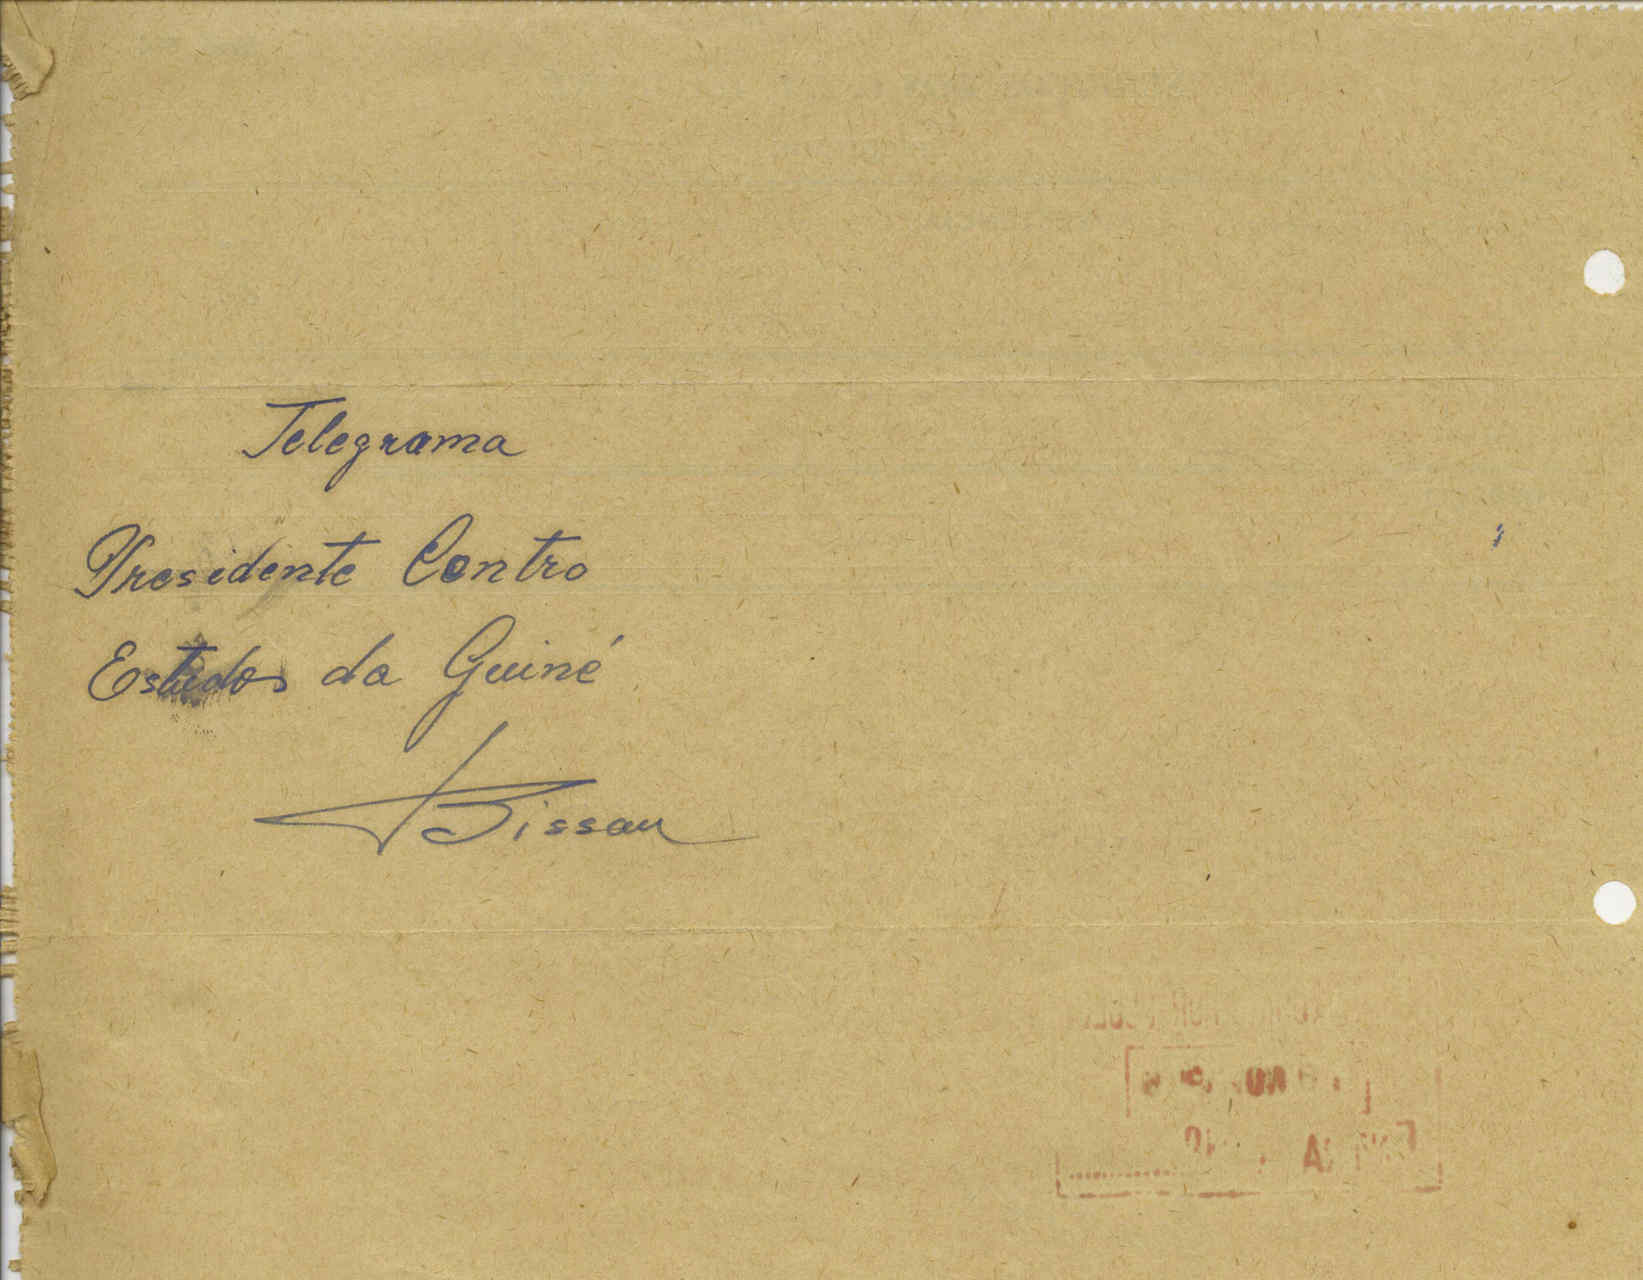 Telegrama
Presidente Centro
Estudos da Guiné
Bissau